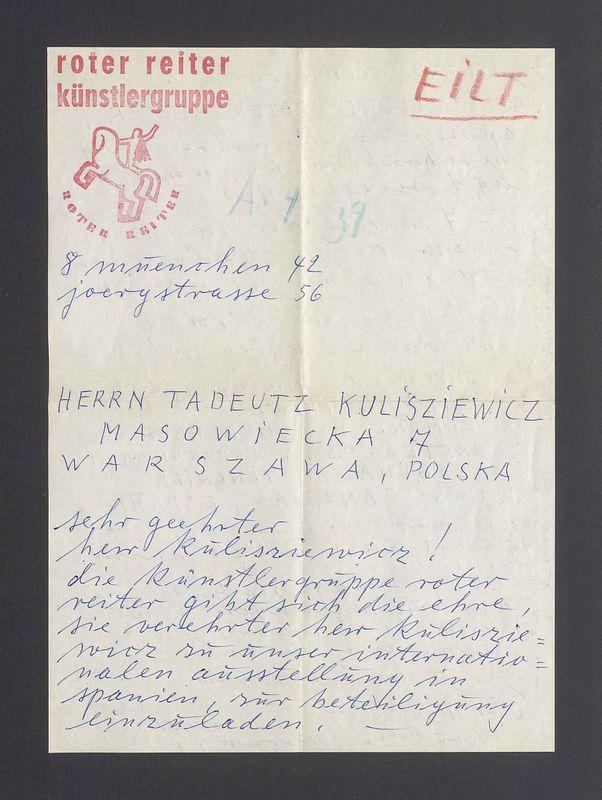 roter reiter
künstlergruppe
EiLT
ROTER REITER
8 muenchen 42
joergstrasse 56
HERRN TADEUTZ KULISZIEWICZ
MASOWIECKA 7
WARSZAWA, POLSKA
sehr geehrter
herr kulisziewicz!
die künstlergruppe roter
reiter gibt sich die ehre,
sie verehrter herr kuliszie=
wicz zu unser internatio=
nalen ausstellung in
spanien, zur beteiligung
einzuladen. —